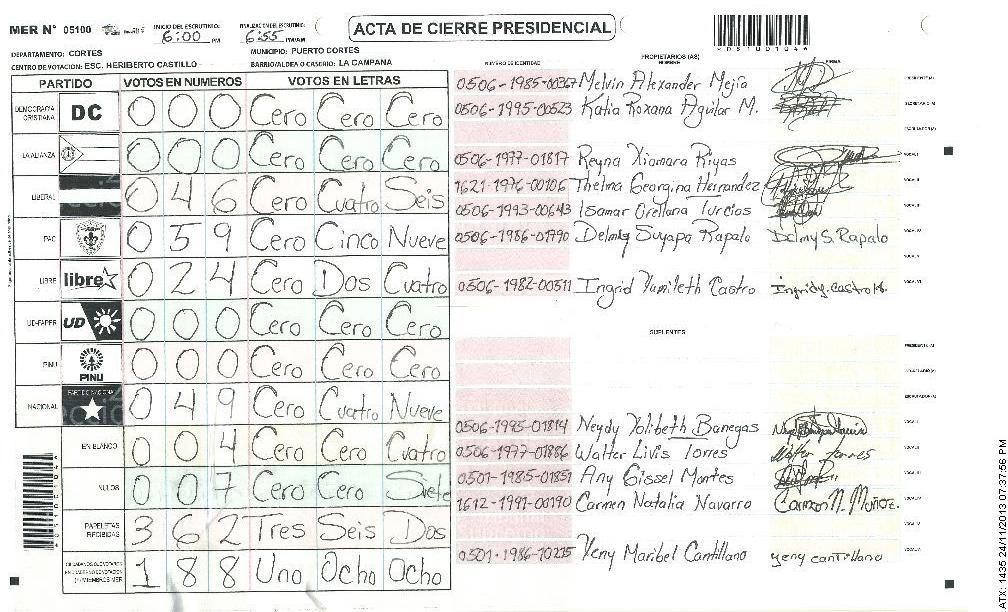 MER N° 05100
INICIO DEL ESCRUTINIO: 6:00 PM
FINALIZACION DEL ESCRUTINIO: 6:55 PM/AM
ACTA DE CIERRE PRESIDENCIAL
DEPARTAMENTO: CORTES
MUNICIPIO: PUERTO CORTES
CENTRO DE VOTACION: ESC. HERIBERTO CASTILLO
BARRIO/ALDEA O CASERIO: LA CAMPANA
PARTIDO VOTOS EN NUMEROS VOTOS EN LETRAS
DEMOCRACIA CRISTIANA DC 0 0 0 Cero Cero Cero
LA ALIANZA 0 0 0 Cero Cero Cero
LIBERAL 0 4 6 Cero Cuatro Seis
PAC 0 5 9 Cero Cinco Nueve
LIBRE libre 0 2 4 Cero Dos Cuatro
UD-FAPER UD 0 0 0 Cero Cero Cero
PINU PINU 0 0 0 Cero Cero Cero
NACIONAL PARTIDO NACIONAL 0 4 9 Cero Cuatro Nueve
EN BLANCO 0 0 4 Cero Cero Cuatro
NULOS 0 0 7 Cero Cero Siete
PAPELETAS RECIBIDAS 3 6 2 Tres Seis Dos
1 8 8 Uno Ocho Ocho
NUMERO DE IDENTIDAD PROPIETARIOS (AS) NOMBRE FIRMA
0506-1985-00367 Melvin Alexander Mejia
0506-1995-00523 Katia Roxana Aguilar M.
0506-1977-01817 Reyna Xiomara Rivas
1621-1976-00106 Thelma Georgina Hernandez
0506-1993-00643 Isamar Orellana Turcios
0506-1986-01790 Delmy Suyapa Rapalo Delmy S. Rapalo
0506-1982-00311 Ingrid Yumileth Castro Ingrid y. Castro
SUPLENTES
0506-1995-01814 Neydy Yolibeth Banegas
0506-1977-01886 Walter Livis Torres Walter Torres
0501-1985-01851 Any Gissel Montes
1612-1991-00190 Carmen Natalia Navarro Carmen N. Muñoz.
0501-1986-10215 Yeny Maribel Cantillano yeny cantillano
ATX: 1435 24/11/2013 07:37:56 PM